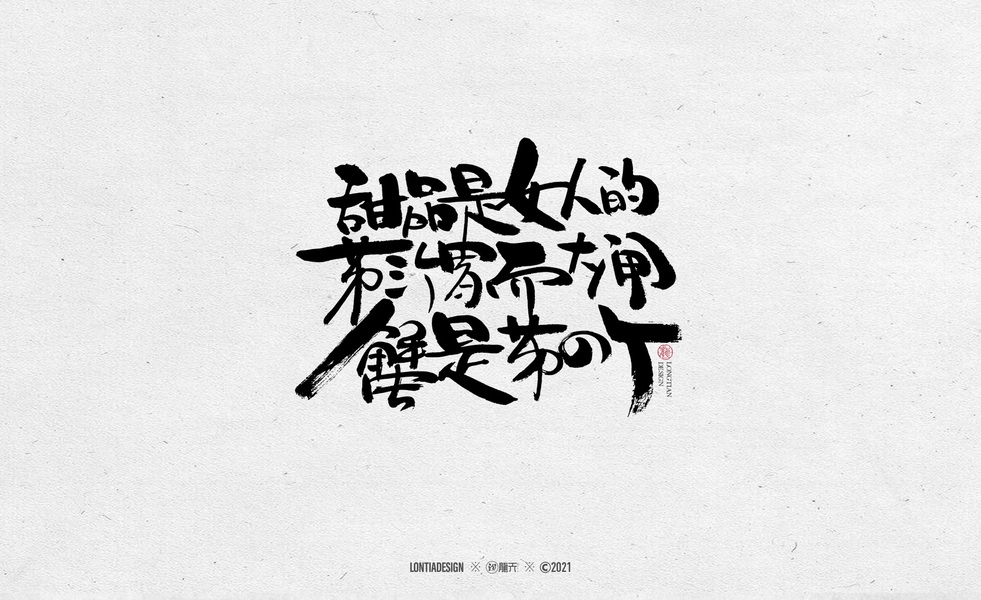 甜品是女人的
第三个胃而大闸
蟹是第の个
LONGTIAN
DESIGN
LONTIADESIGN ※ 龍天 ※ ©2021